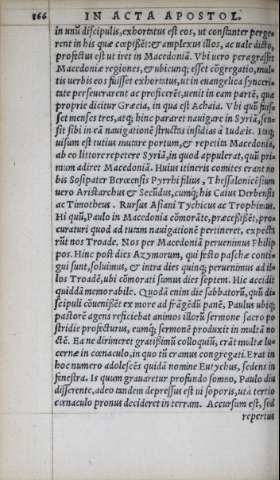 166 IN ACTA APOSTOL.
in unũ discipulis, exhortatus est eos, ut constanter perge⸗
rent in his quæ cœpissẽt: & amplexus illos, ac uale dicto,
profectus est ut iret in Macedoniã. Vbi uero peragrasset
Macedoniæ regiones, & ubicunq; esset cõgregatio, mul⸗
tis uerbis eos fuisset exhortatus, ut in euangelica synceri⸗
tate perseuerarent ac proficerẽt, uenit in eam partẽ, quæ
proprie dicitur Græcia, in qua est Achaia. Vbi quũ fuis⸗
set menses tres, atq; hinc pararet nauigare in Syriã, sen⸗
sit sibi in eã nauigationẽ structas insidias à Iudæis. Itaq;
uisum est tutius mutare portum, & repetita Macedonia,
ab eo littore repetere Syriã, in quod appulerat, quũ pri⸗
mum adiret Macedoniã. Huius itineris comites erant no
bis Sosipater Berœensis Pyrrhi filius, Thessalonicẽsium
uero Aristarchus & Secũdus, cumq; his Caius Derbensis
ac Timotheus. Rursus Asiani Tychicus ac Trophimus.
Hi quũ, Paulo in Macedonia cõmorãte, præcessissẽt, pro⸗
curaturi quod ad tutam nauigationẽ pertineret, expectã
rũt nos Troade. Nos per Macedoniã peruenimus Philip
pos. Hinc post dies Azymorum, qui festo paschæ conti⸗
gui sunt, soluimus, & intra dies quinq; peruenimus ad il⸗
los Troadẽ, ubi cõmorati sumus dies septem. Hic accidit
quiddã memorabile. Quodã enim die sabbatorũ, quũ di⸗
scipuli cõuenissẽt ex more ad frãgẽdũ panẽ, Paulus ubiq;
pastorẽ agens reficiebat animos illorũ sermone sacro po
stridie profecturus, eumq; sermonẽ produxit in multã no
ctẽ. Ea ne dirimeret gratissimũ colloquiũ, erãt multæ lu⸗
cernæ in cœnaculo, in quo tũ eramus congregati. Erat in
hoc numero adolescẽs quidã nomine Eutychus, sedens in
fenestra. Is quum grauaretur profundo somno, Paulo diu
disserente, adeo tandem depressus est ui soporis, ut à tertio
cœnaculo pronus decideret in terram. Accursum est, sed
repertus